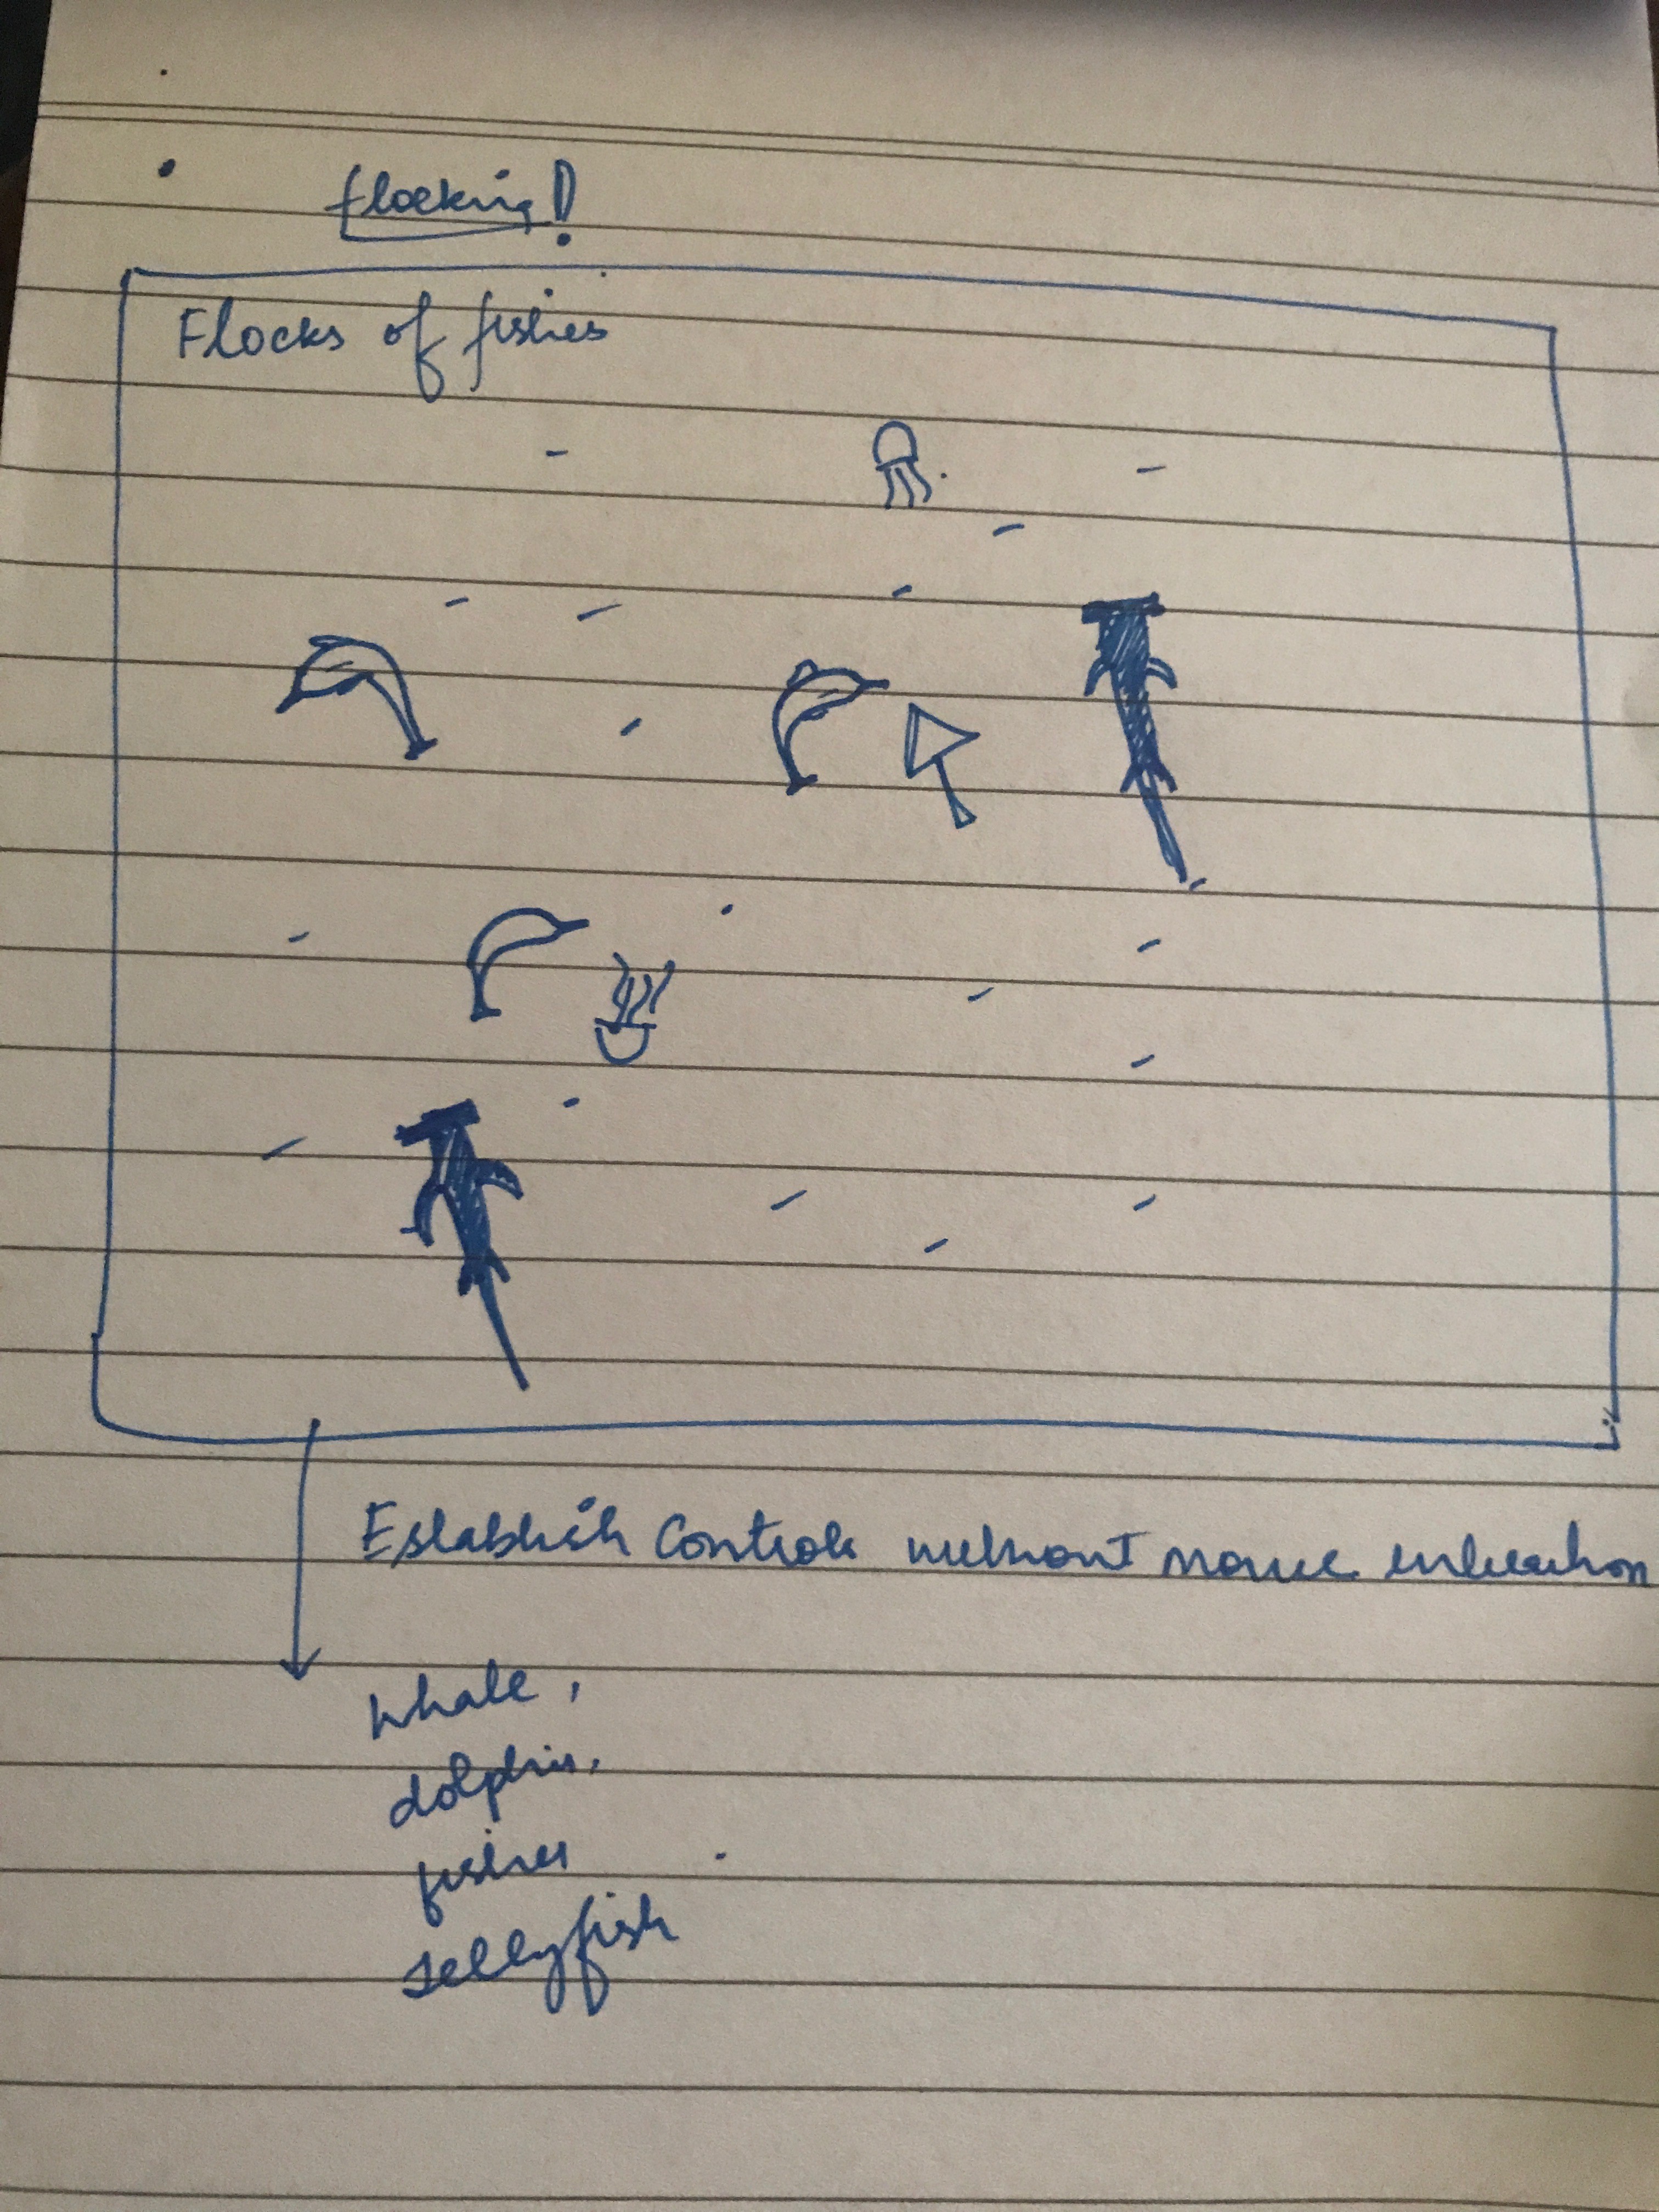 flocking!
Flocks of fishes
Establish Controls without mouse interaction
Whale,
dolphin,
fishes
Jellyfish